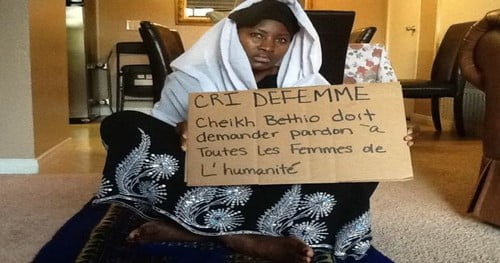 CRI DEFEMME
Cheikh Bethio doit
demander pardon a
Toutes Les Femmes de
L'humanité